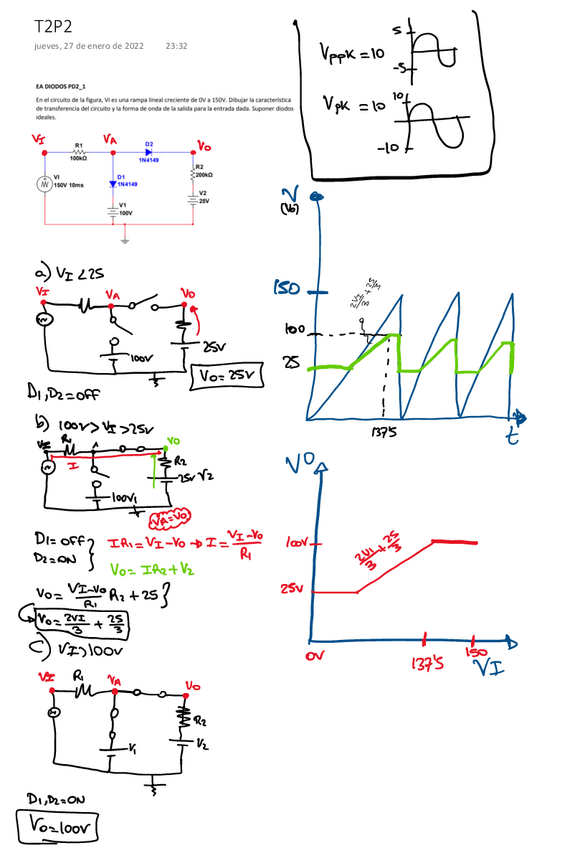 T2P2
jueves, 27 de enero de 2022 23:32
EA DIODOS PD2_1
En el circuito de la figura, VI es una rampa lineal creciente de 0V a 150V. Dibujar la característica
de transferencia del circuito y la forma de onda de la salida para la entrada dada. Suponer diodos
ideales.
VI
R1
100kΩ
VA
D2
1N4149
VO
VI
150V 10ms
D1
1N4149
R2
200kΩ
V1
100V
V2
25V
Vppk = 10
5
-5
Vpk = 10
10
-10
a) VI < 25
VI
VA
VO
100V
25V
Vo = 25V
D1, D2 = OFF
b) 100V > VI > 25V
VI
R1
A
VO
I
R2
25V V2
100V1
VA = VO
D1 = OFF
D2 = ON
IR1 = VI - VO → I = VI - VO / R1
VO = IR2 + V2
VO = VI - VO / R1 R2 + 25
VO = 2VI / 3 + 25 / 3
C) VI > 100V
VI
R1
VA
VO
R2
V1
V2
D1, D2 = ON
VO = 100V
V
(VO)
150
100
25
2VI/3 + 25/3
137'5
t
VO
100V
25V
2VI/3 + 25/3
0V
137'5
150
VI